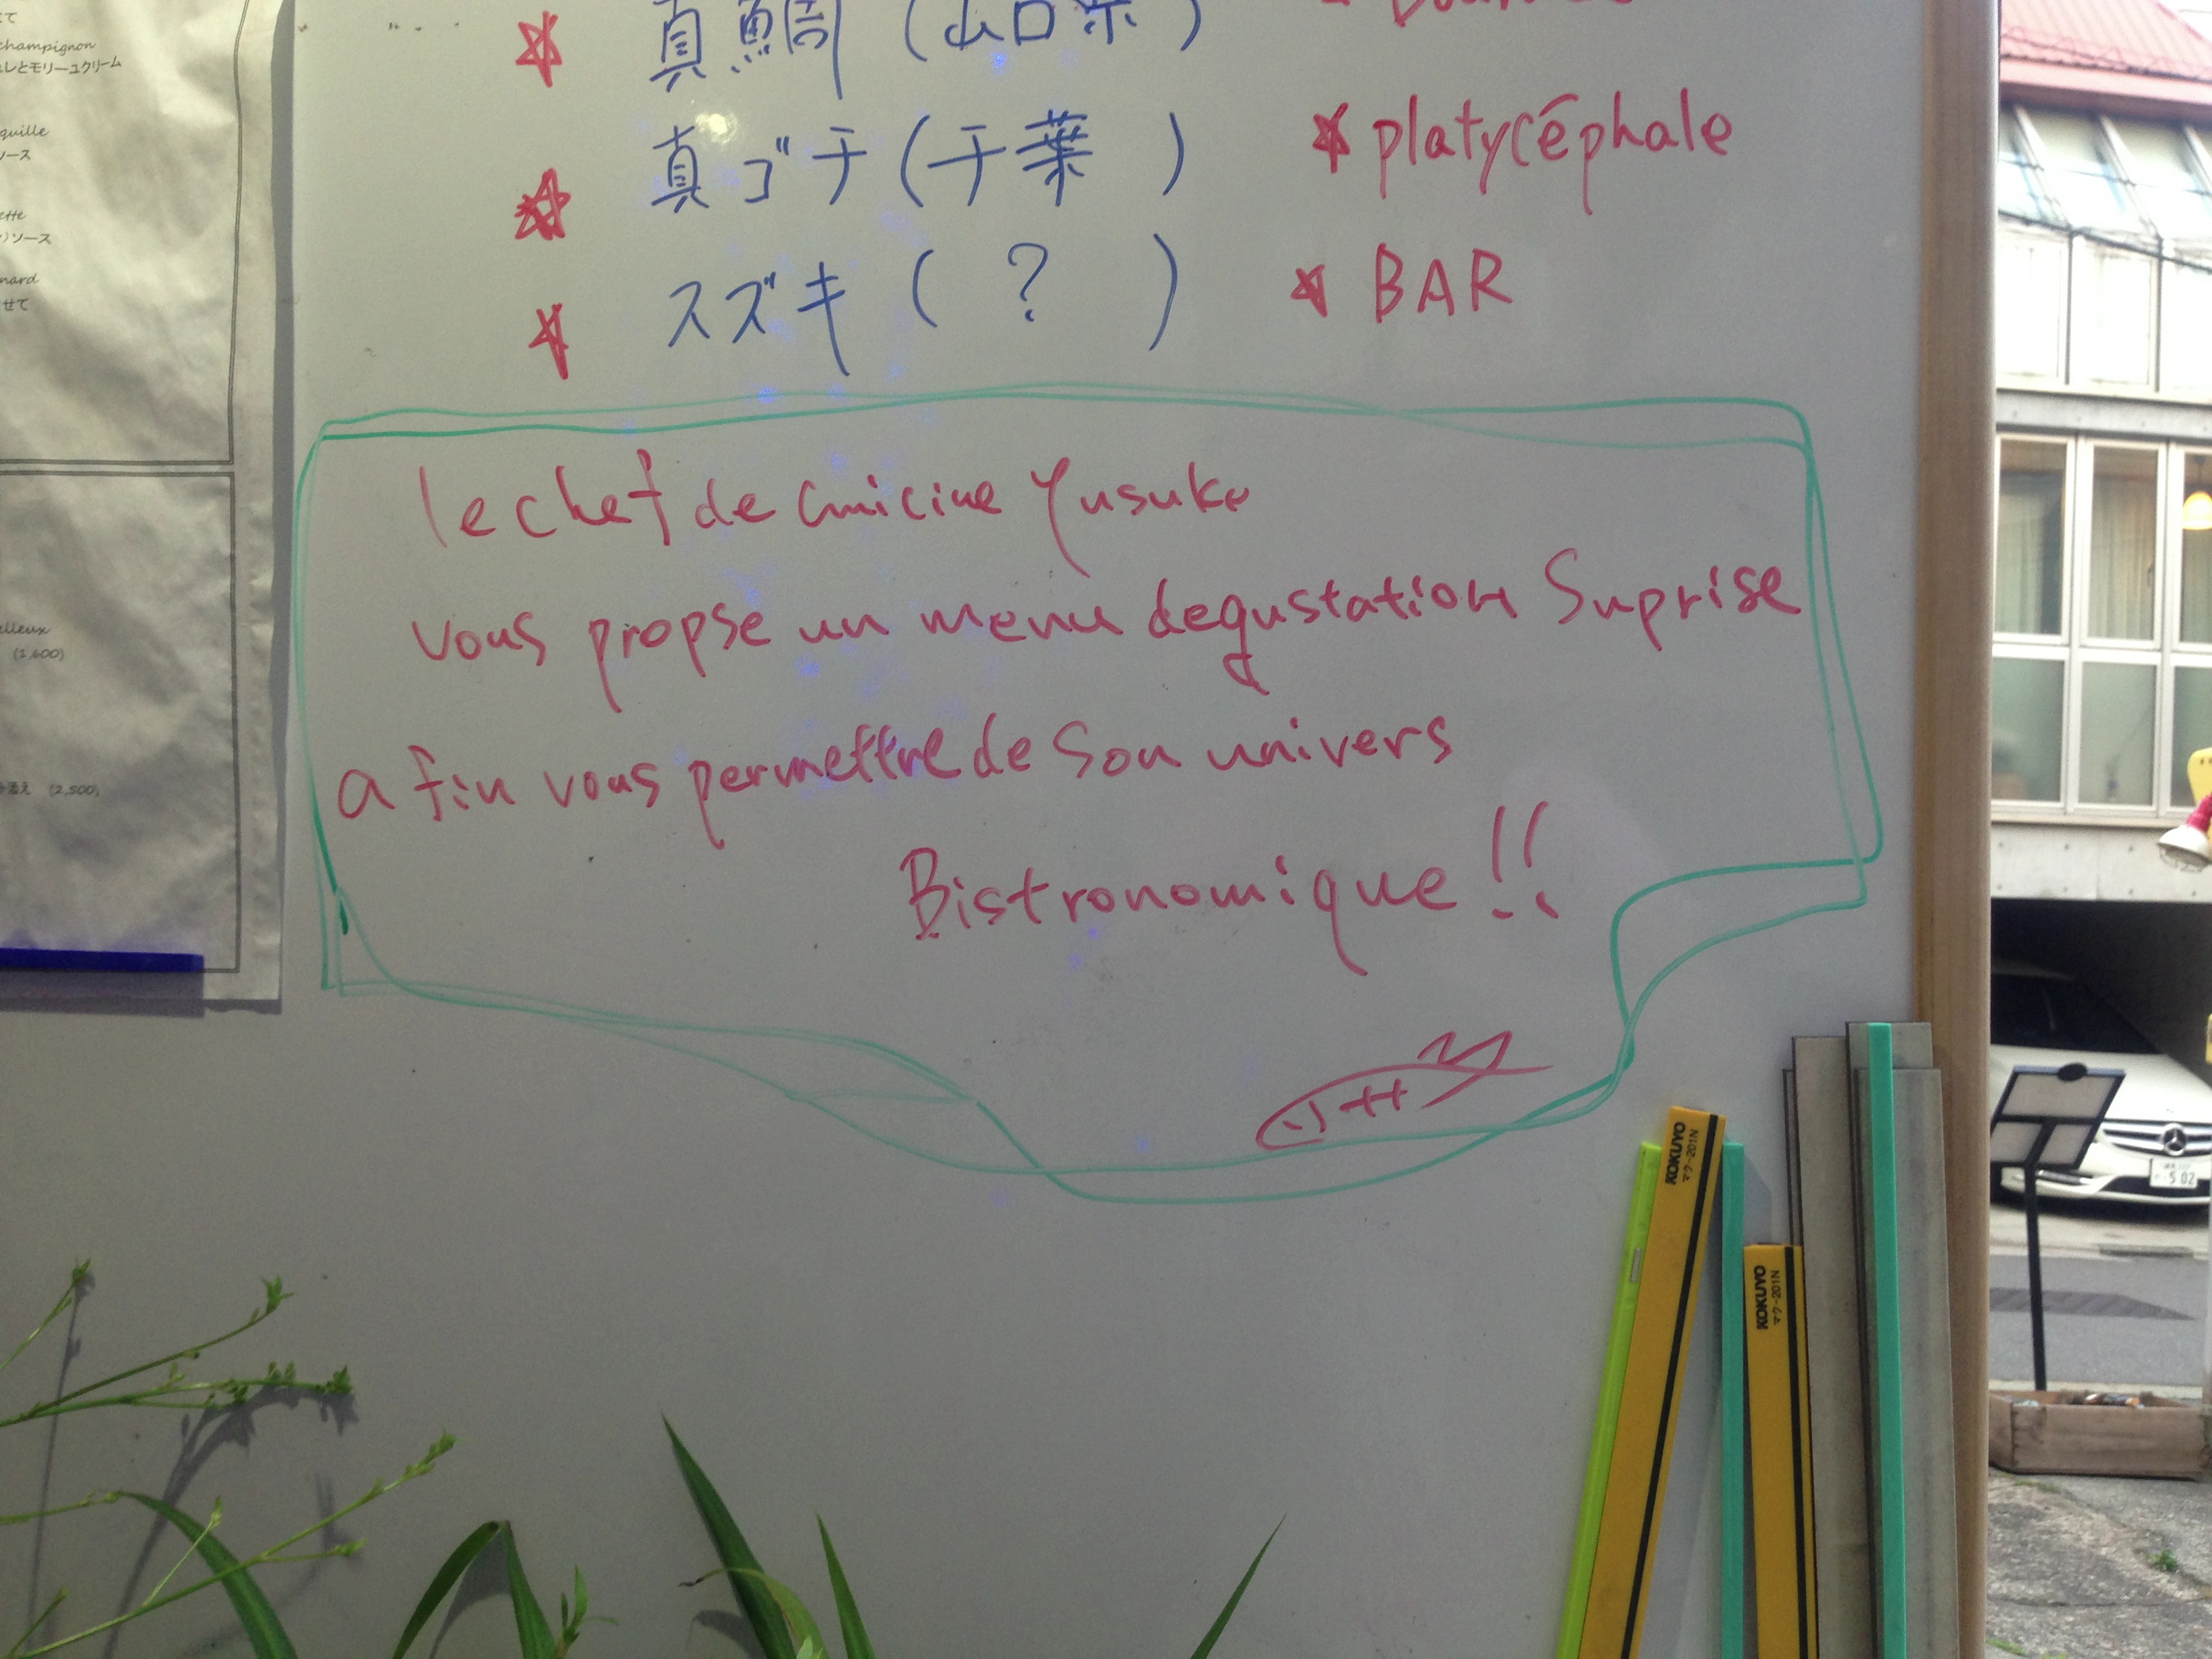 champignon
レとモリーユクリーム
quille
ソース
ette
ソース
nard
せて
elleux
(1,600)
添え (2,500)
真鯛 (山口県)
真ゴチ (千葉 )
platycéphale
スズキ ( ? )
BAR
le chef de cuicine Yusuke
vous propse un menu degustation Suprise
a fin vous permettre de son univers
Bistronomique !!
KOKUYO
マク-201N
KOKUYO
マク-201N
502